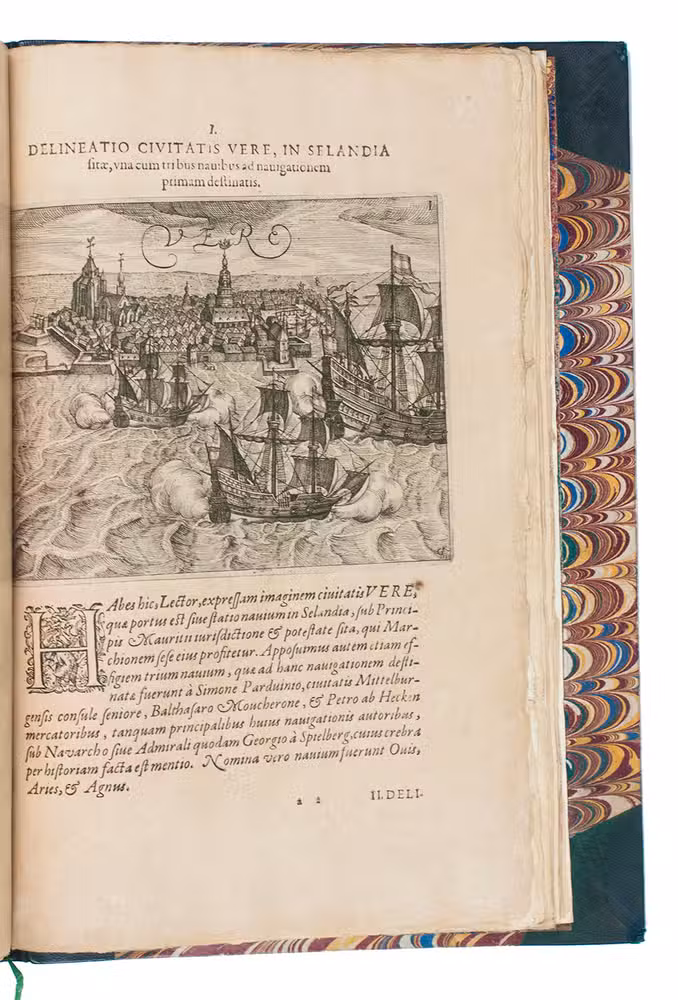 I.
DELINEATIO CIVITATIS VERE, IN SELANDIA
sitæ, vna cum tribus nauibus ad nauigationem
primam destinatis.
1
VERE
HAbes hic, Lector, expressam imaginem ciuitatis VERE,
quæ portus est siue statio nauium in Selandia, sub Princi-
pis Mauritii iurisdictione & potestate sita, qui Mar-
chionem sese eius profitetur. Apposuimus autem etiam ef-
figiem trium nauium, quæ ad hanc nauigationem desti-
natæ fuerunt à Simone Parduinio, ciuitatis Mittelbur-
gensis consule seniore, Balthasaro Moucherone, & Petro ab Hecken
mercatoribus, tanquam principalibus huius nauigationis autoribus,
sub Navarcho siue Admirali quodam Georgio à Spielberg, cuius crebra
per historiam facta est mentio. Nomina vero nauium fuerunt Ouis,
Aries, & Agnus.
a 2
II. DELI-